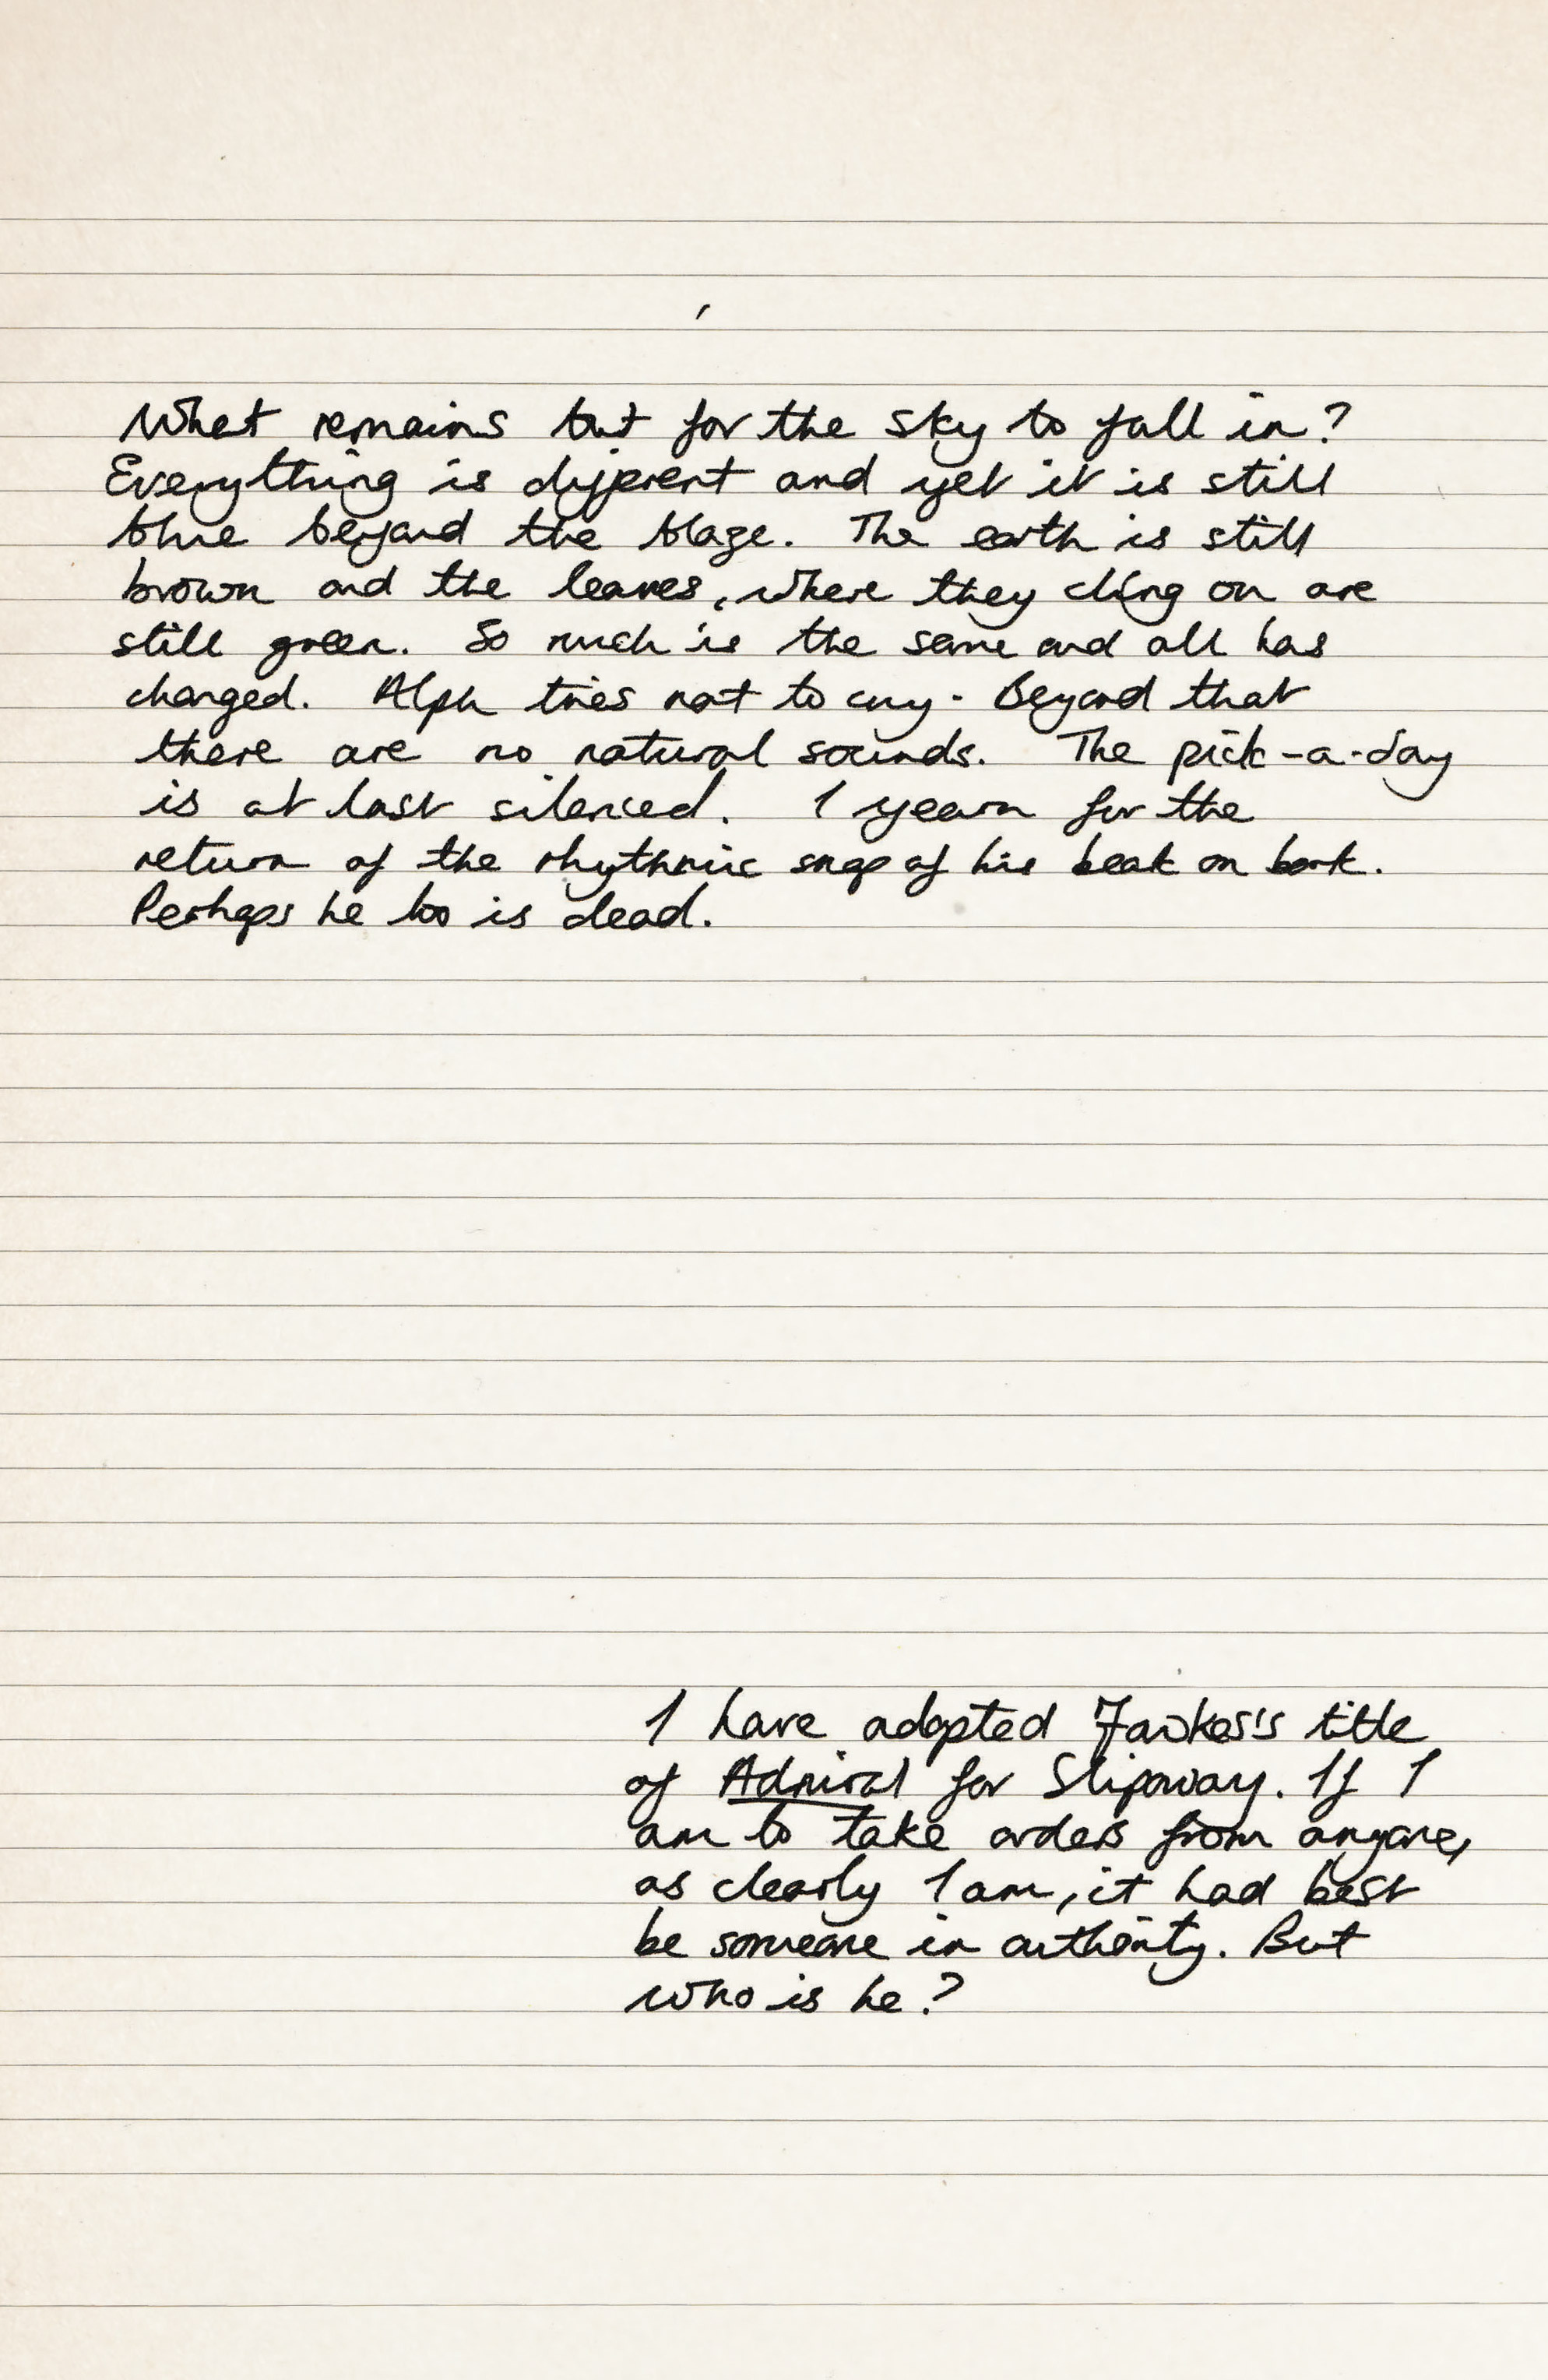 What remains but for the sky to fall in?
Everything is different and yet it is still
blue beyond the blaze. The earth is still
brown and the leaves, where they cling on are
still green. So much is the same and all has
changed. Alph tries not to cry. Beyond that
there are no natural sounds. The pick-a-day
is at last silenced. I yearn for the
return of the rhythmic snap of his beak on bark.
Perhaps he too is dead.
I have adopted Fawkes's title
of Admiral for Slipway. If I
am to take orders from anyone,
as clearly I am, it had best
be someone in authority. But
who is he?